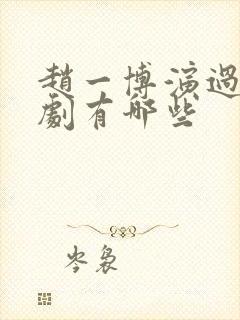 趙一博演過
劇有哪些
岑裊